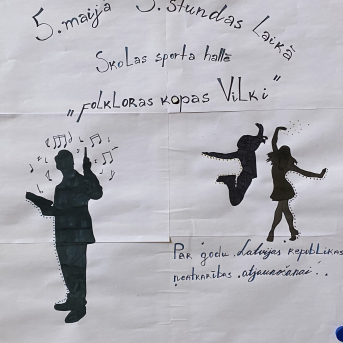 5. maija 3. stundas laikā
Skolas sporta hallē
"Folkloras kopas Vilki"
Par godu Latvijas Republikas
neatkarības atjaunošanai..